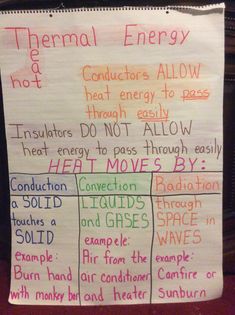 Thermal Energy
Heat
hot
Conductors ALLOW
heat energy to pass
through easily
Insulators DO NOT ALLOW
heat energy to pass through easily
HEAT MOVES BY:
Conduction
a SOLID
touches a
SOLID
example:
Burn hand
with monkey bar
Convection
LIQUIDS
and GASES
exampele:
Air from the
air conditioner
and heater
Radiation
through
SPACE in
WAVES
example:
Camfire or
sunburn